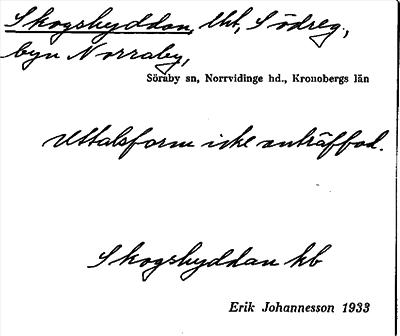 Skogshyddan, lht, Södreg.,
byn Norraby,
Söraby sn, Norrvidinge hd., Kronobergs län
Uttalsform icke anträffad.
Skogshyddan kb
Erik Johannesson 1933